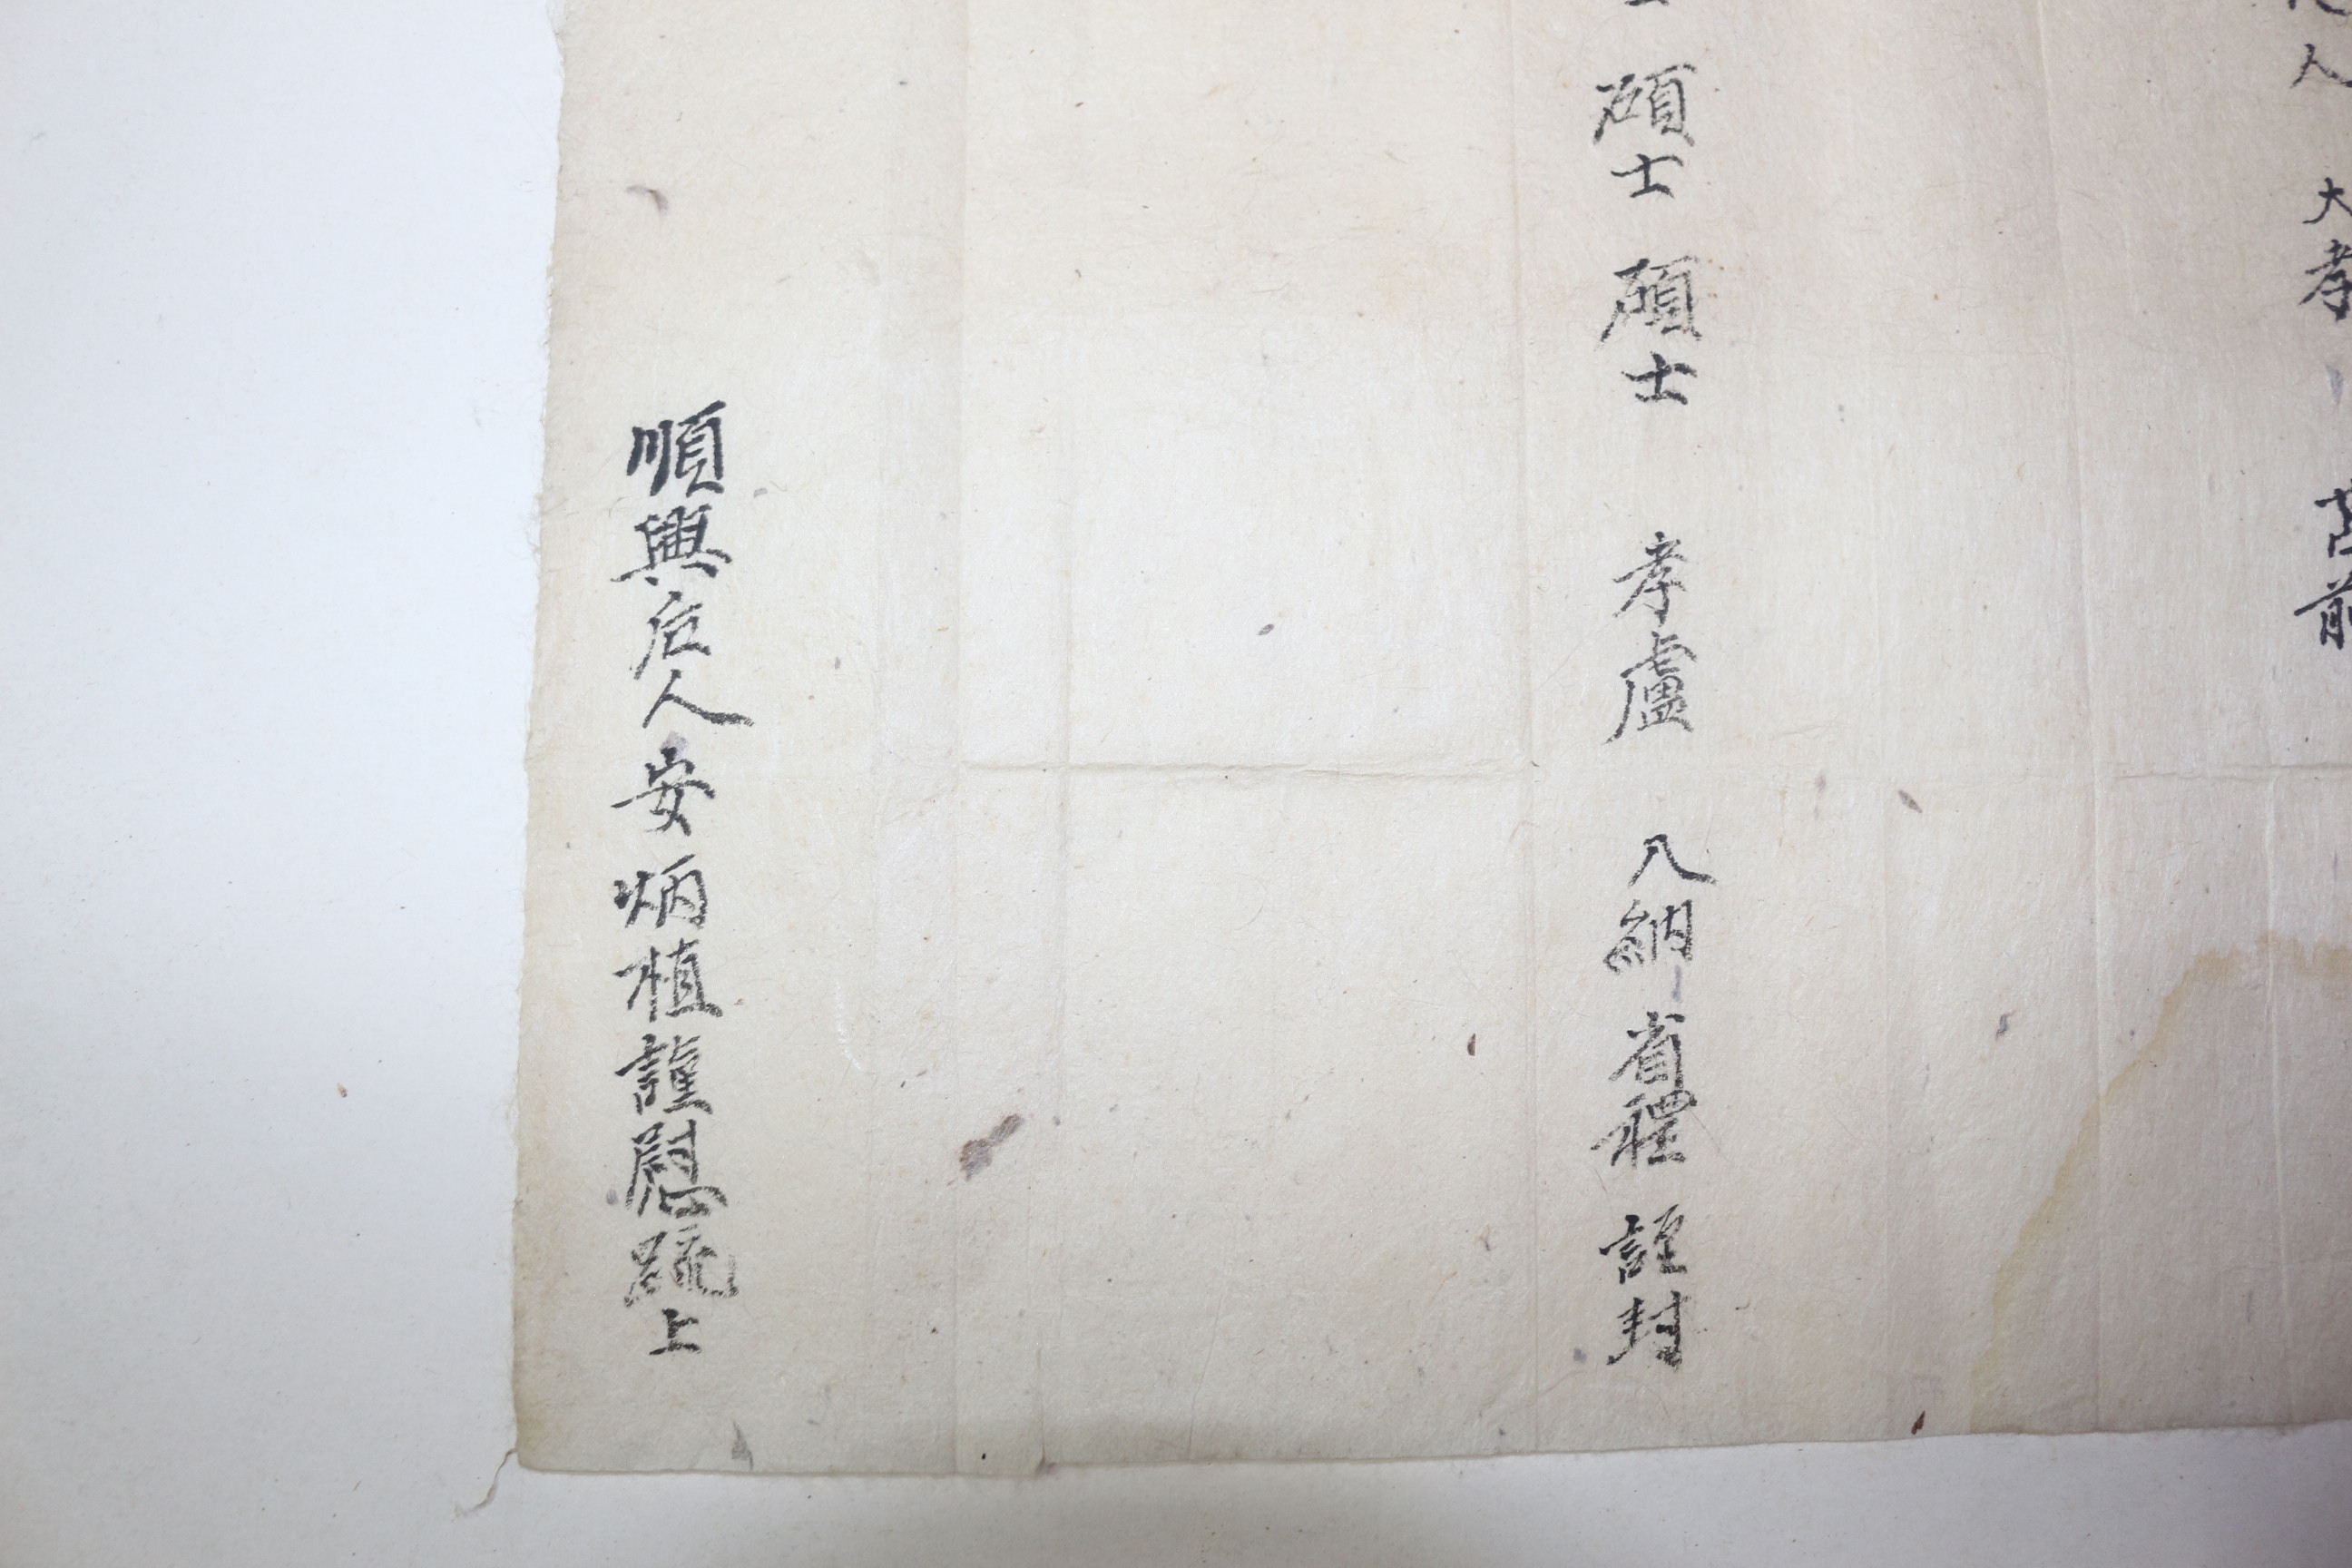 人 大孝 前
碩士 碩士 孝廬 入納 省禮 謹封
順興后人安炳植謹慰疏上